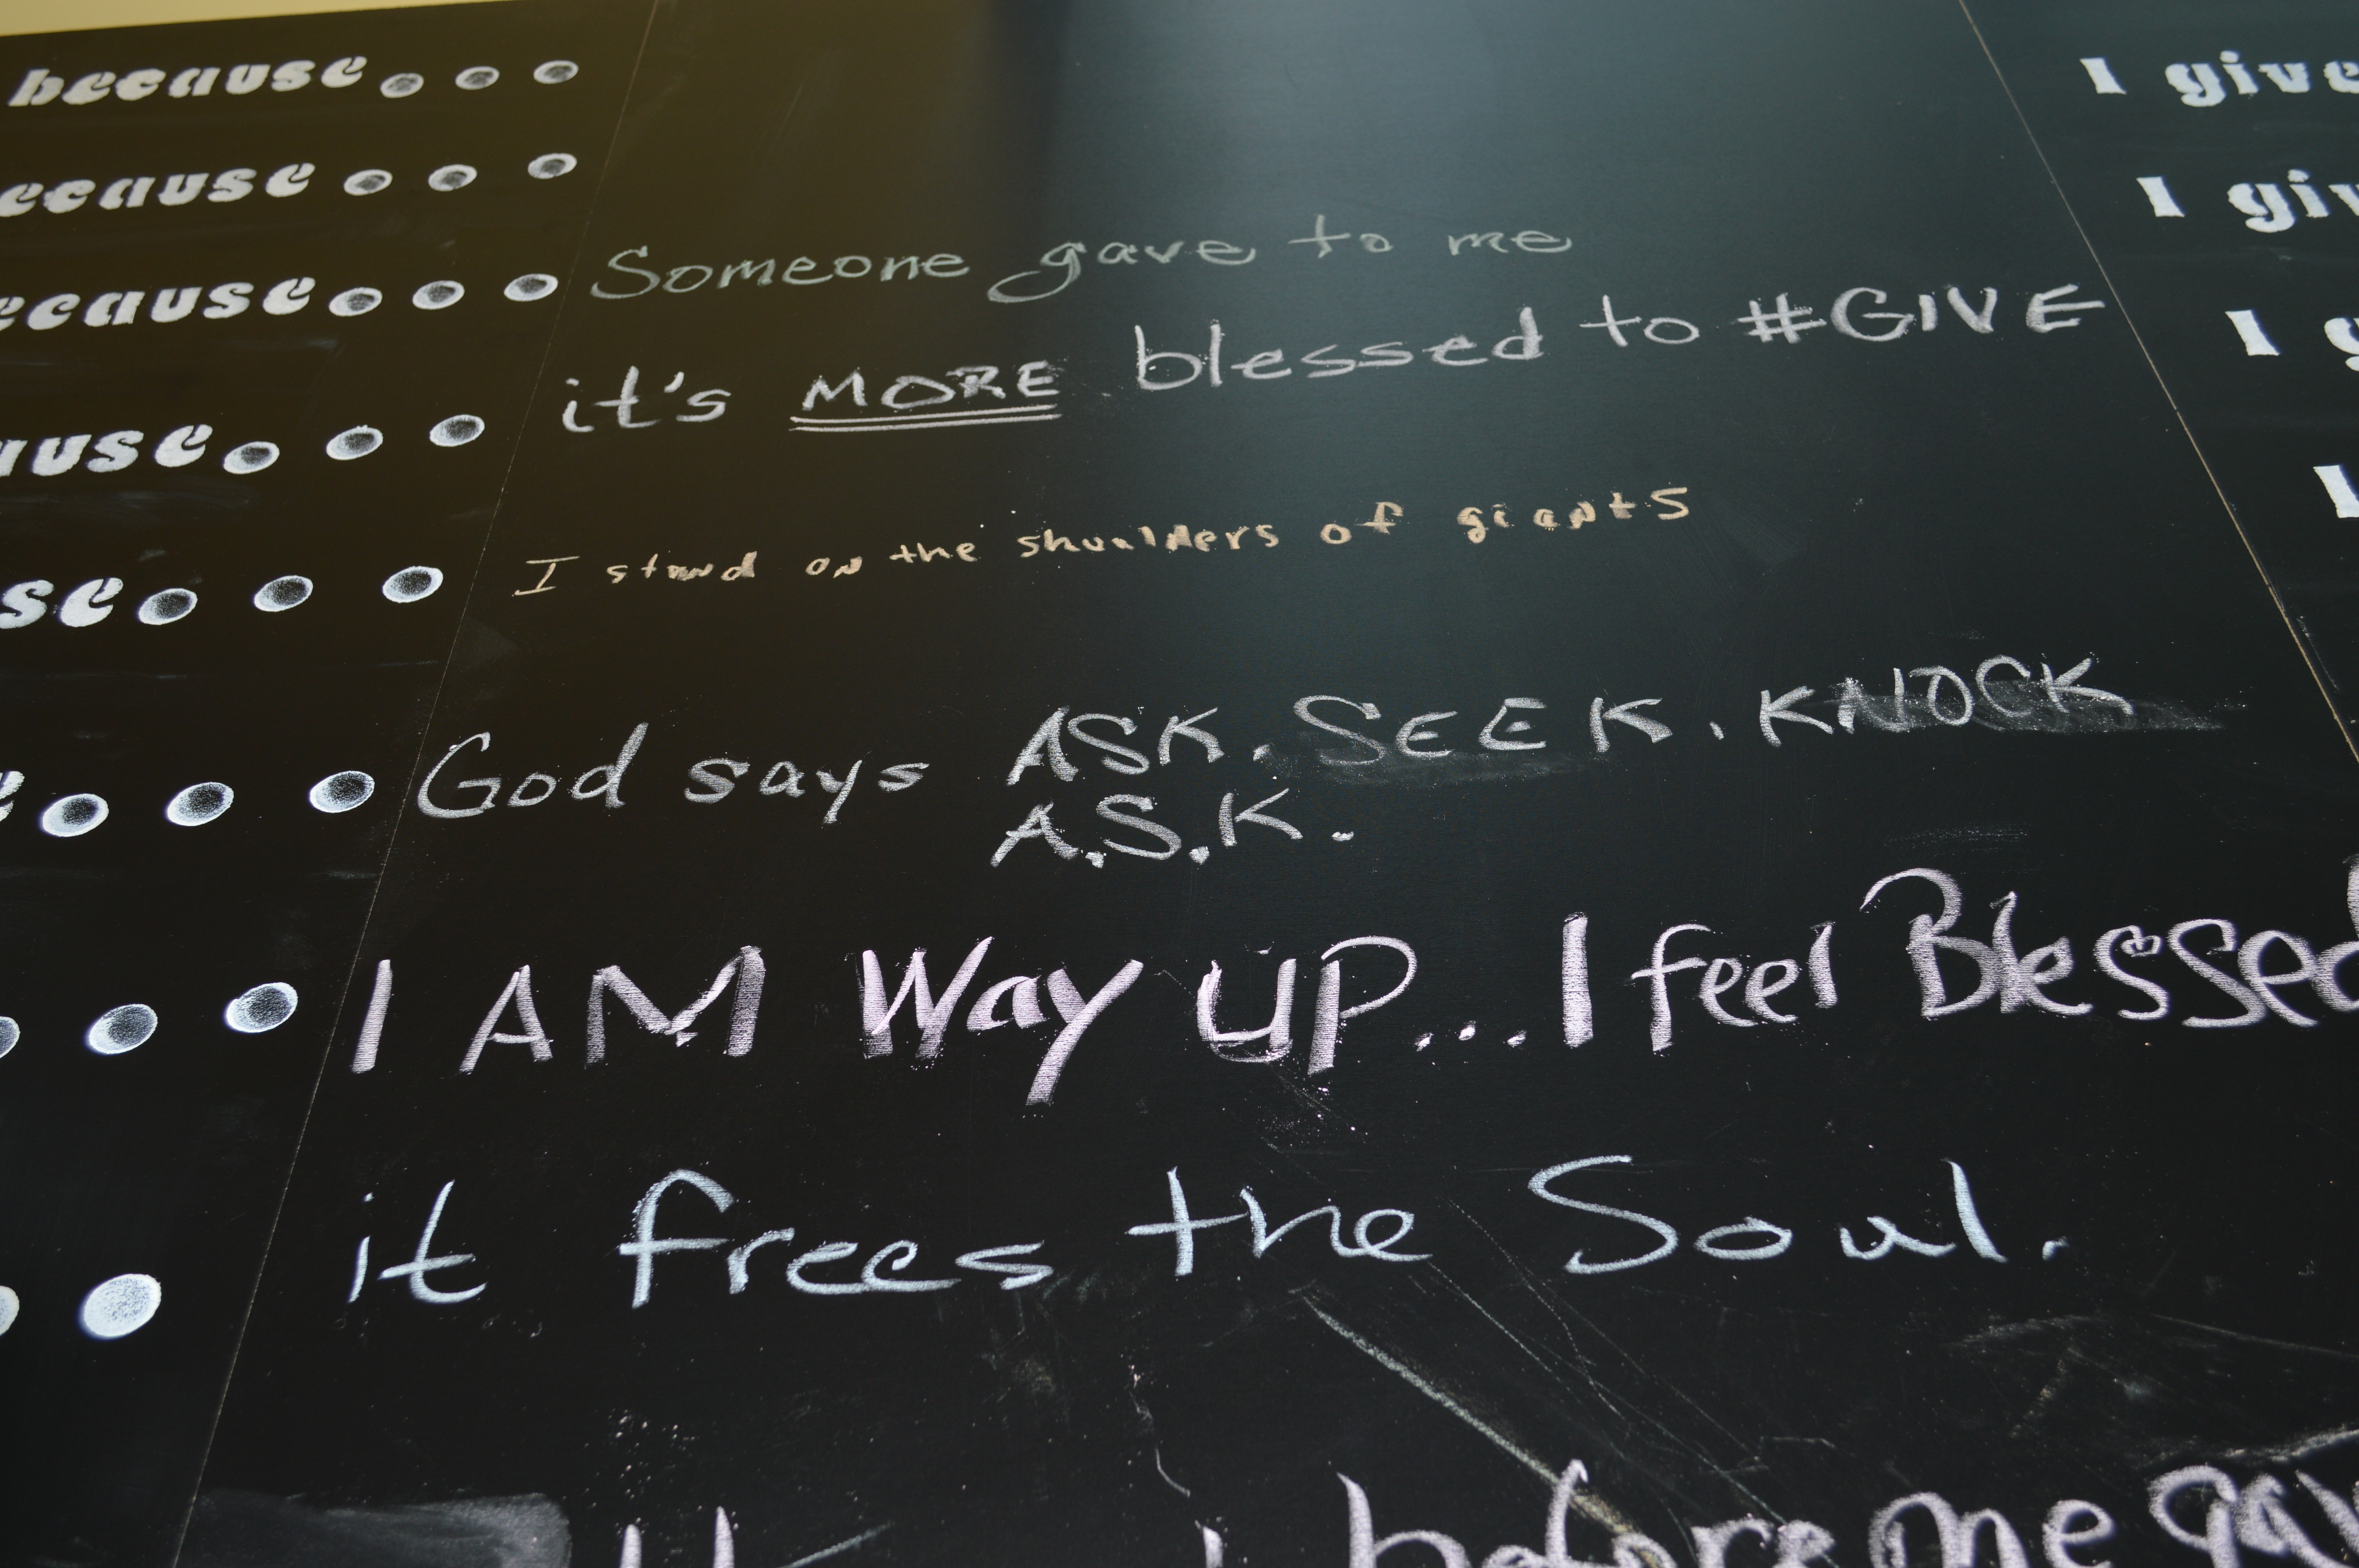 because...
because... I give
ecause... Someone gave to me
ause... it's MORE blessed to #GIVE
se... I stand on the shoulders of giants
e... God says ASK. SEEK. KNOCK
A.S.K.
... I AM Way UP...I feel Blessed
it frees the Soul.
before me gav
I give
I giv
I g
I